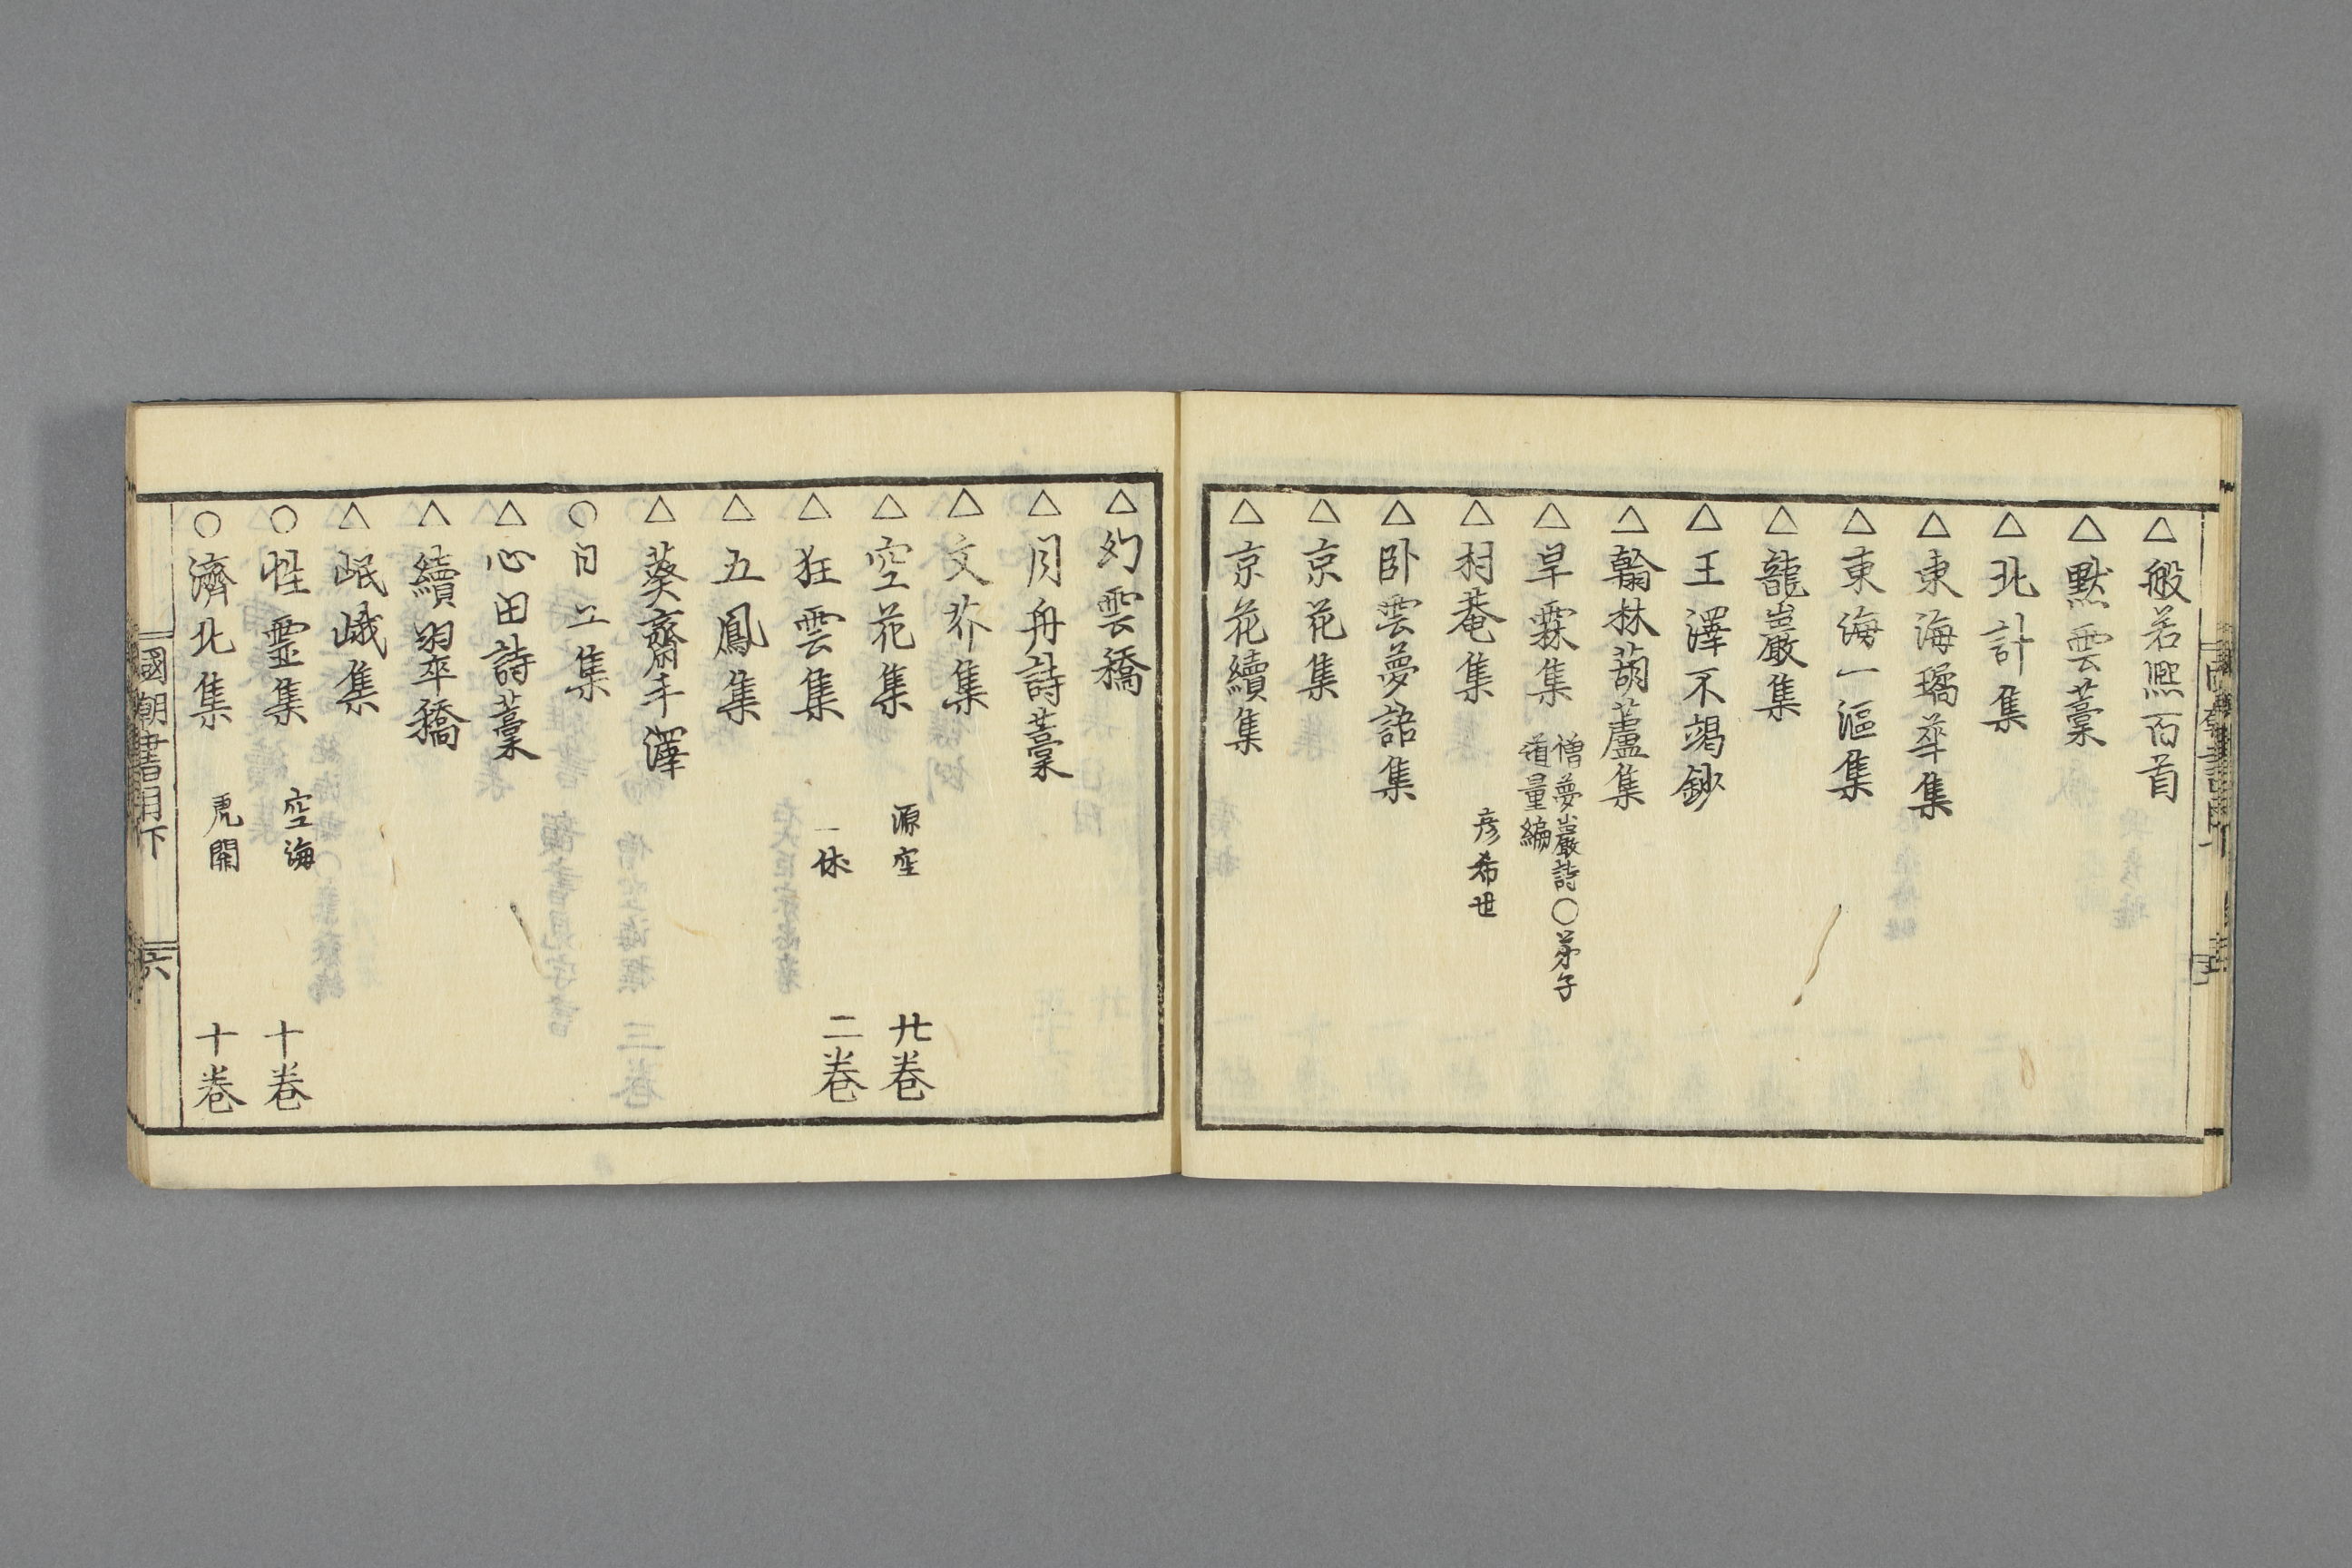 △般若熙百首
△默雲藁
△北計集
△東海璚華集
△東海一漚集
△龍嵓巖集
△王澤不竭鈔
△翰林葫蘆集
△旱霖集 僧夢巖詩〇弟子
道量編
△村菴集 彦希世
△臥雲夢語集
△京花集
△京花續集
△幻雲稿
△月舟詩藁
△文芥集
△空花集 源空 廿卷
△狂雲集 一休 二卷
△五鳳集
△葵齋手澤
〇日工集
△心田詩藁
△續翠稿
△岷峨集
〇性靈集 空海 十卷
〇濟北集 虎關 十卷
國朝書目下
六